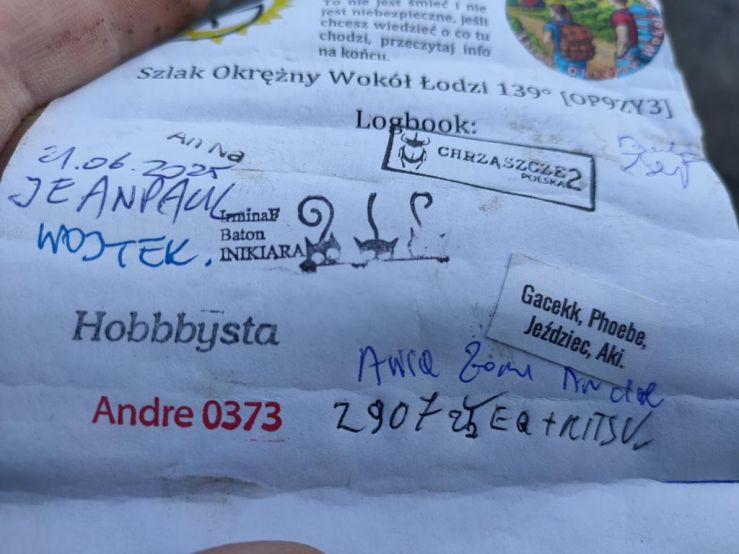 To nie jest śmieć i nie
jest niebezpieczne, jeśli
chcesz wiedzieć o co tu
chodzi, przeczytaj info
na końcu.
Szlak Okrężny Wokół Łodzi 139° [OP9ZY3]
Logbook:
An Na
CHRZĄSZCZE2
POLSKA
21.06.2025
JEANPAUL
IrminaF
Baton
INIKIARA
WOJTEK.
Gacekk, Phoebe,
Jeździec, Aki.
Hobbbysta
Andre 0373
2907 25 EQ + KITSU